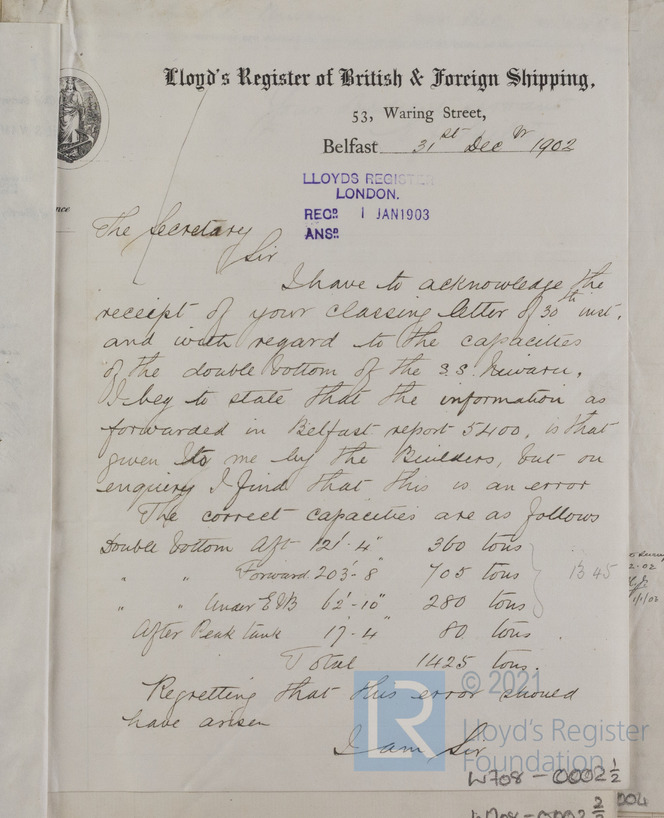 Lloyd's Register of British & Foreign Shipping,
53, Waring Street,
Belfast 31st Decr 1902
LLOYDS REGISTER
LONDON.
RECD. 1 JAN 1903
ANSD.
The Secretary
Sir
I have to acknowledge the
receipt of your classing letter of 30th inst,
and with regard to the capacities
of the double bottom of the S.S.
I beg to state that the information as
forwarded in Belfast report 5400, is that
given to me by the Builders, but on
enquiry I find that this is an error
The correct capacities are as follows
Double bottom Aft 121'-4" 360 tons
" " Forward 203'-8" 705 tons 1345
" " Under E&B 62'-10" 280 tons
After Peak tank 17'-4" 80 tons
Total 1425 tons.
Regretting that this error should
have arisen
I am Sir
© 2021
LR
Lloyd's Register
Foundation
W708-0002 1/2
W708-0002 2/2
004
nce